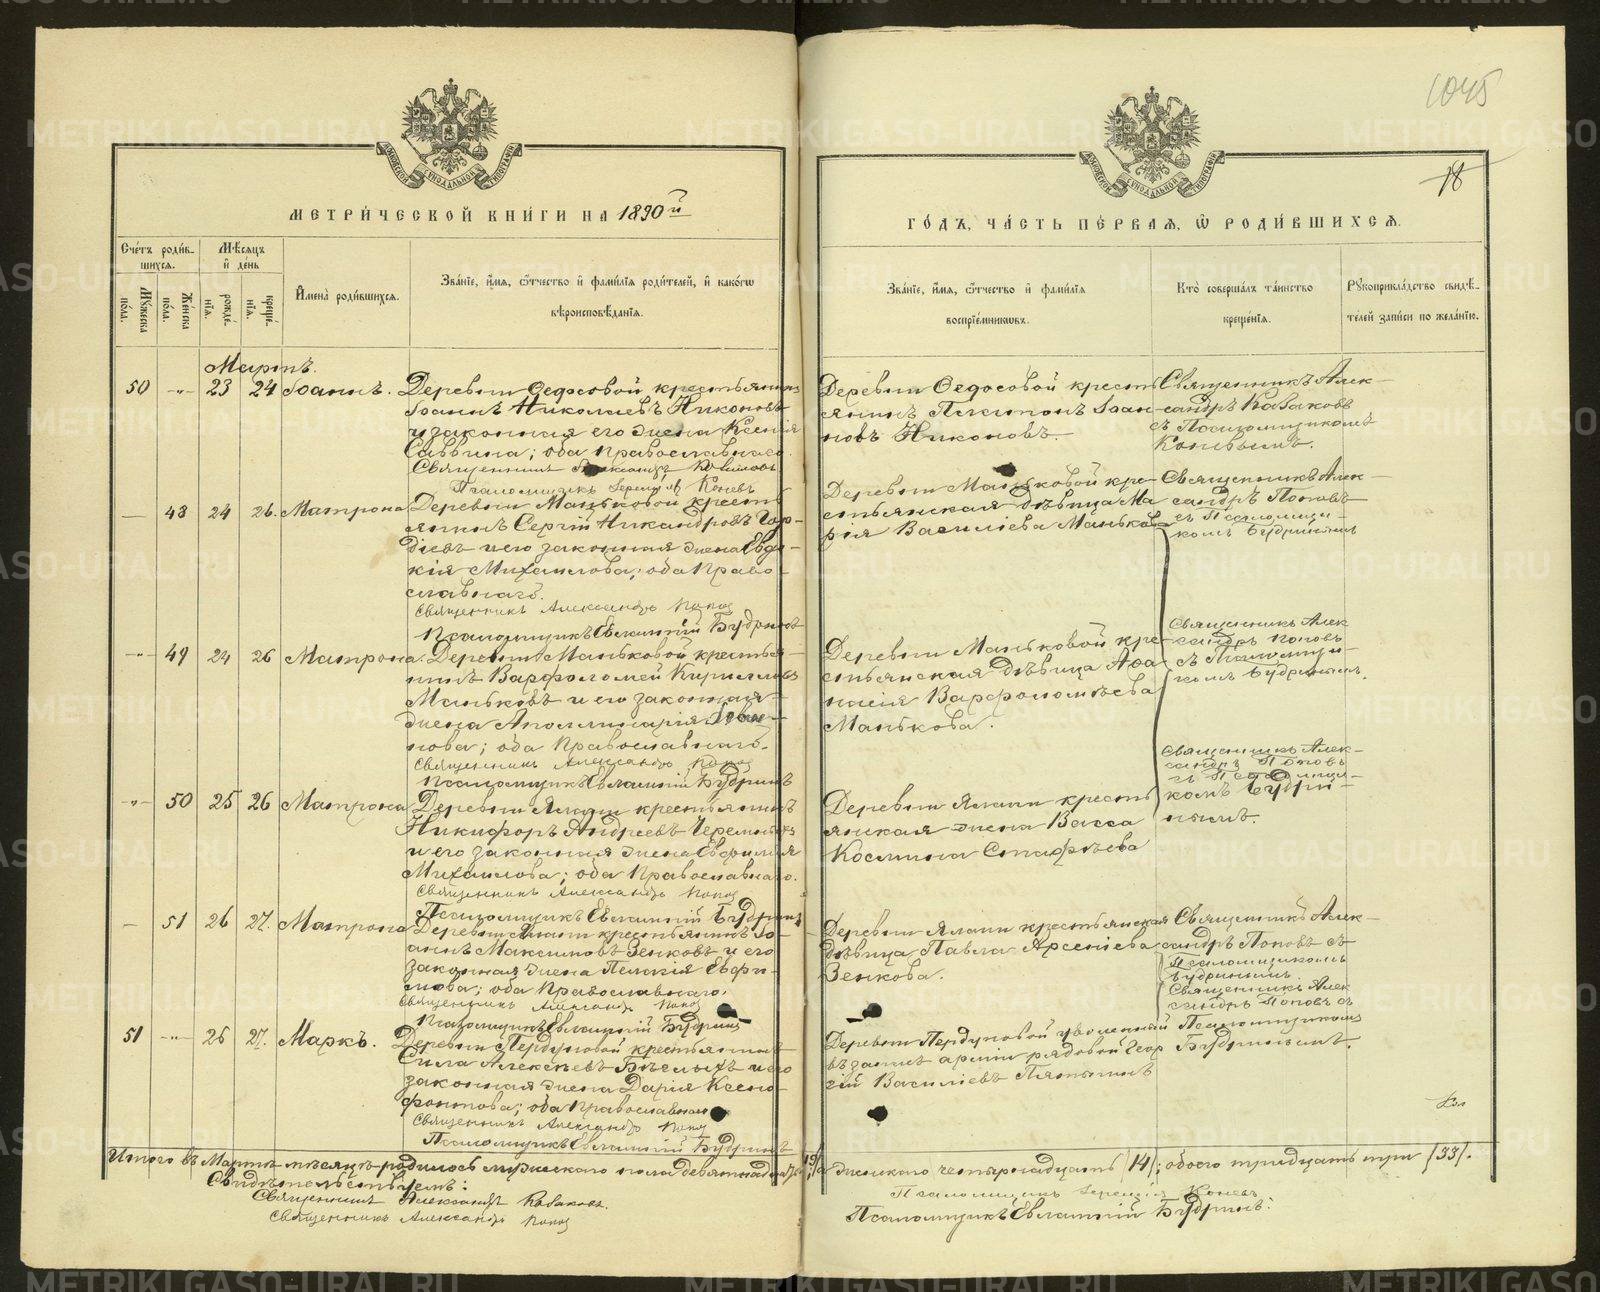 1045
18
МЕТРИ́ЧЕСКОЙ КНИ́ГИ НА 1890й
ГО́ДЪ, ЧА́СТЬ ПЕ́РВАЯ, Ѽ РОДИ́ВШИХСѦ.
Сче́тъ роди́вшихсѧ.
Мѣ́сяцъ и҆ де́нь
Мꙋ́жеска по́ла.
Же́нска по́ла.
рожде́нїѧ.
креще́нїѧ.
И҆мена̀ роди́вшихсѧ.
Зва́нїе, и҆́мѧ, ѻ҆́тчество и҆ фами́лїѧ роди́телей, и҆ како́гѡ
вѣроисповѣ́данїѧ.
Зва́нїе, и҆́мѧ, ѻ҆́тчество и҆ фами́лїѧ
воспрїе́мникѡвъ.
Кто̀ соверша́лъ та́инство
креще́нїѧ.
Рꙋкоприкла́дство свидѣ́-
телей за́писи по жела́нїю.
Мартъ.
50 -"- 23 24 Іоаннъ.
Деревни Ѳедосовой крестьянинъ
Іоаннъ Николаевъ Никоновъ
и законная его жена Ксенія
Саввина; оба православнаго.
Священникъ Александръ Коваковъ
Псаломщикъ Коневъ
Деревни Ѳедосовой кресть-
янинъ Платонъ Іоан-
новъ Никоновъ.
Священникъ Алек-
сандръ Коваковъ
съ Псаломщикомъ
Коневымъ.
— 48 24 26. Матрона
Деревни Маньковой кресть-
янинъ Сергій Никандровъ Гор-
діевъ и его законная жена Евдо-
кія Михаилова; оба Право-
славнаго.
Священникъ Александръ Попов
Псаломщикъ Евлампій Будринъ
Деревни Маньковой кре-
стьянская дѣвица Ма-
рія Василіева Манькова
Священникъ Алек-
сандръ Поповъ
съ Псаломщи-
комъ Будринымъ
-"- 49 24 26 Матрона.
Деревни Маньковой крестья-
нинъ Варфоломей Кирилловъ
Маньковъ и его законная
жена Аполлинарія Іоан-
нова; оба Православнаго.
Священникъ Александръ Попов
Псаломщикъ Евлампій Будринъ
Деревни Маньковой кре-
стьянская дѣвица Аѳа-
насія Варфоломѣева
Манькова.
Священникъ Алек
сандръ Поповъ
съ Псаломщи-
комъ Будринымъ.
-"- 50 25 26 Матрона
Деревни Ялани крестьянинъ
Никифоръ Андреевъ
и его законная жена Евфимія
Михаилова; оба Православнаго.
Священникъ Александръ Попов
Псаломщикъ Евлампій Будринъ
Деревни Ялани кресть-
янская жена Васса
Космина Стафѣева
Священникъ Алек-
сандръ Поповъ
съ Псаломщи-
комъ Будри-
нымъ.
— 51 26 27. Матрона
Деревни Ялани крестьянинъ Іо-
аннъ Максимовъ Зенковъ и его
законная жена Пелагія Евфи-
мова; оба Православнаго.
Священникъ Александръ Попов
Псаломщикъ Евлампій Будринъ
Деревни Ялани крестьянская
дѣвица Павла Арсеніева
Зенкова.
Священникъ Алек-
сандръ Поповъ съ
Псаломщикомъ
Будринымъ.
51 -"- 26 27. Маркъ.
Деревни Пердуновой крестьянинъ
Сила Алексѣевъ Бѣлыхъ и его
законная жена Дарія Ксено-
фонтова; оба православнаго
Священникъ Александръ Попов
Псаломщикъ Евлампій Будринъ
Деревни Пердуновой уволенный
въ запасъ арміи рядовой Геор-
гій Василіевъ
Священникъ Алек
сандръ Поповъ съ
Псаломщикомъ
Будринымъ.
Итого въ Мартѣ мѣсяцѣ родилось мужескаго пола девятнадцать /19/, а женскаго четырнадцать /14/; обоего тридцать три /33/.
Свидѣтельствуемъ:
Священникъ Александръ Коваковъ.
Священникъ Александръ Попов
Псаломщикъ Коневъ
Псаломщикъ Евлампій Будринъ.
METRIKI.GASO-URAL.RU